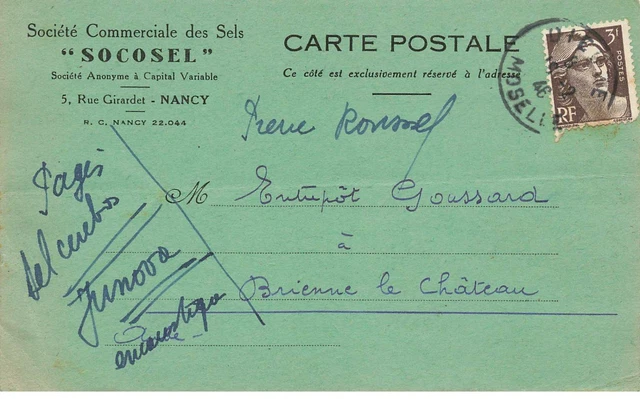 Société Commerciale des Sels
"SOCOSEL"
Société Anonyme à Capital Variable
5, Rue Girardet - NANCY
R. C. NANCY 22.044
CARTE POSTALE
Ce côté est exclusivement réservé à l'adresse
3F
POSTES
RF
MOSELLE
Roussel
M Entrepôt Goussard
à
Brienne le Château
Sel cerebos